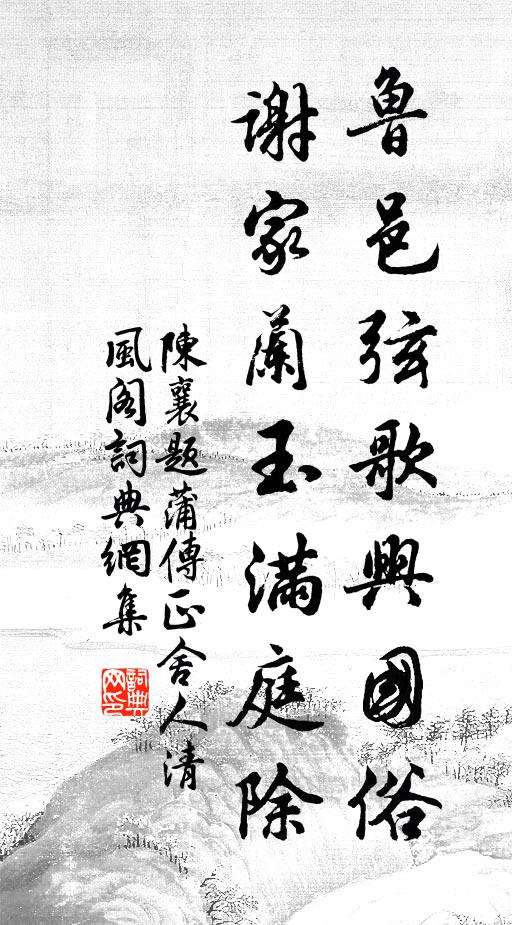 魯邑弦歌興國俗
謝家蘭玉滿庭除
陳襄題蒲傳正舍人清
風閣詞典網集
詞典網印